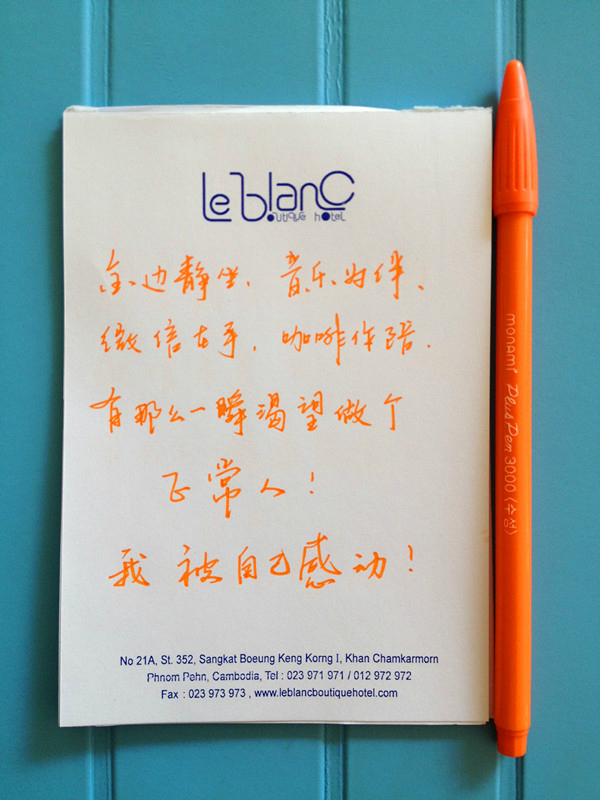 le blanc
boutique hotel
金边静坐、音乐为伴、
微信在手,咖啡作陪.
有那么一瞬渴望做个
正常人!
我被自己感动!
No 21A, St. 352, Sangkat Boeung Keng Korng I, Khan Chamkarmorn
Phnom Pehn, Cambodia, Tel : 023 971 971 / 012 972 972
Fax : 023 973 973 , www.leblancboutiquehotel.com
monami Plus Pen 3000 (수성)